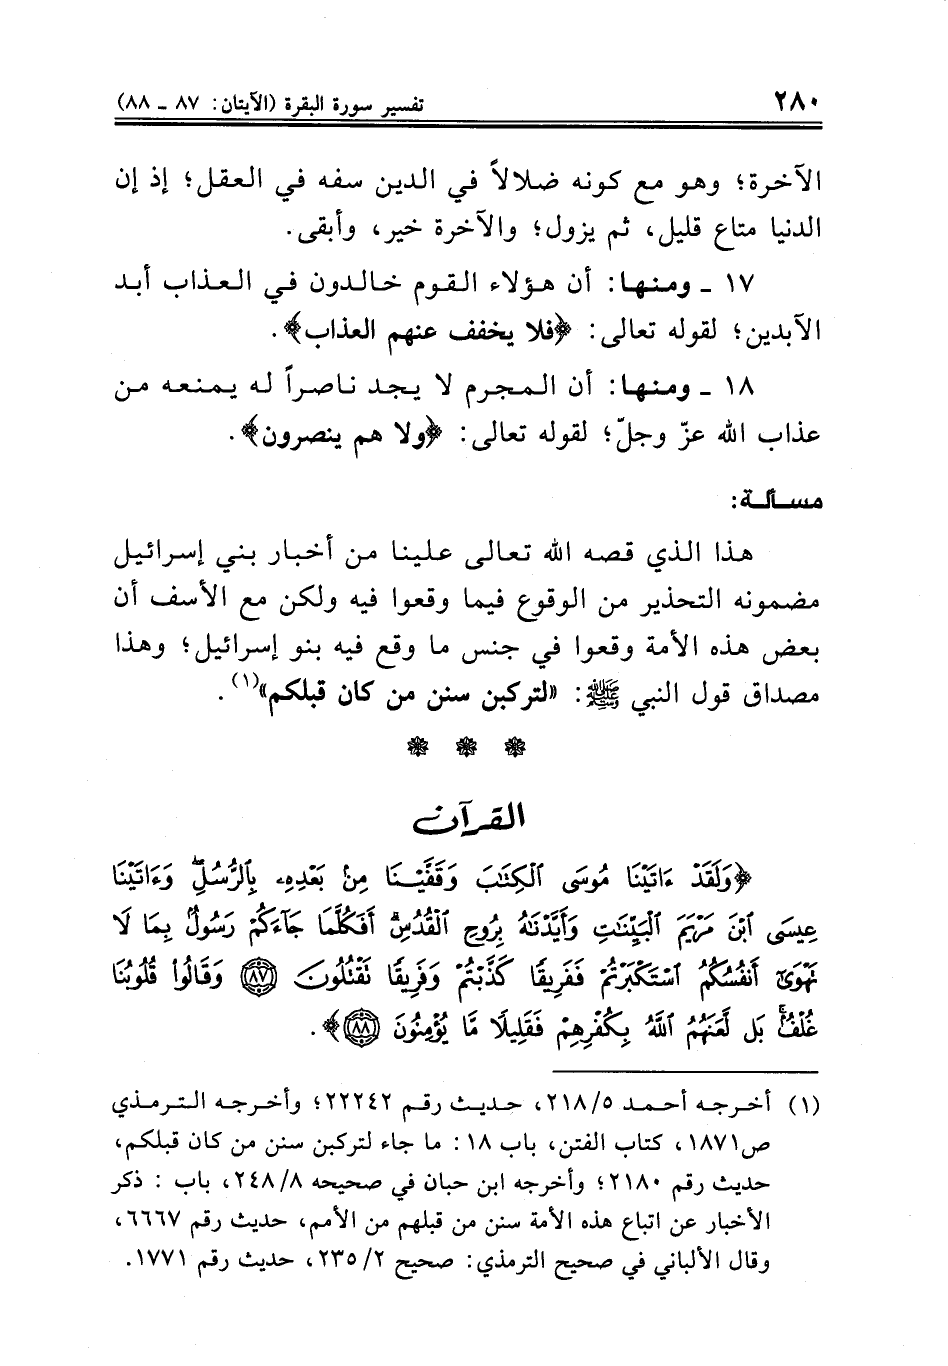 ٢٨٠
تفسير سورة البقرة (الآيتان: ٨٧ ـ ٨٨)
الآخرة؛ وهو مع كونه ضلالاً في الدين سفه في العقل؛ إذ إن
الدنيا متاع قليل، ثم يزول؛ والآخرة خير، وأبقى.
١٧ ـ ومنها: أن هؤلاء القوم خالدون في العذاب أبد
الآبدين؛ لقوله تعالى: ﴿فلا يخفف عنهم العذاب﴾.
١٨ ـ ومنها: أن المجرم لا يجد ناصراً له يمنعه من
عذاب الله عزّ وجلّ؛ لقوله تعالى: ﴿ولا هم ينصرون﴾.
مسألة:
هذا الذي قصه الله تعالى علينا من أخبار بني إسرائيل
مضمونه التحذير من الوقوع فيما وقعوا فيه ولكن مع الأسف أن
بعض هذه الأمة وقعوا في جنس ما وقع فيه بنو إسرائيل؛ وهذا
مصداق قول النبي ﷺ: «لتركبن سنن من كان قبلكم»(١).
القرآن
﴿وَلَقَدْ ءَاتَيْنَا مُوسَى ٱلْكِتَٰبَ وَقَفَّيْنَا مِنۢ بَعْدِهِۦ بِٱلرُّسُلِ ۖ وَءَاتَيْنَا
عِيسَى ٱبْنَ مَرْيَمَ ٱلْبَيِّنَٰتِ وَأَيَّدْنَٰهُ بِرُوحِ ٱلْقُدُسِ ۗ أَفَكُلَّمَا جَآءَكُمْ رَسُولٌۢ بِمَا لَا
تَهْوَىٰٓ أَنفُسُكُمُ ٱسْتَكْبَرْتُمْ فَفَرِيقًا كَذَّبْتُمْ وَفَرِيقًا تَقْتُلُونَ ٨٧ وَقَالُوا۟ قُلُوبُنَا
غُلْفٌۢ ۚ بَل لَّعَنَهُمُ ٱللَّهُ بِكُفْرِهِمْ فَقَلِيلًا مَّا يُؤْمِنُونَ ٨٨﴾.
(١) أخرجه أحمد ٢١٨/٥، حديث رقم ٢٢٢٤٢؛ وأخرجه الترمذي
ص١٨٧١، كتاب الفتن، باب ١٨: ما جاء لتركبن سنن من كان قبلكم،
حديث رقم ٢١٨٠؛ وأخرجه ابن حبان في صحيحه ٢٤٨/٨، باب : ذكر
الأخبار عن اتباع هذه الأمة سنن من قبلهم من الأمم، حديث رقم ٦٦٦٧،
وقال الألباني في صحيح الترمذي: صحيح ٢٣٥/٢، حديث رقم ١٧٧١.